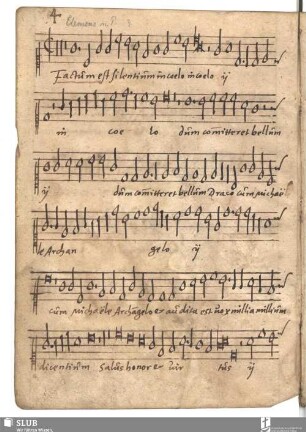 4 Clemens n. P. 3
Factum est silentium in coelo in coelo ij
in coe lo dum comitteret bellum
ij dum comitteret bellum Draco cum michaele
le Archan gelo ij
cum michaele Archagelo & audita est millia millium
dicentium Salus honor & vir tus ij
SLUB